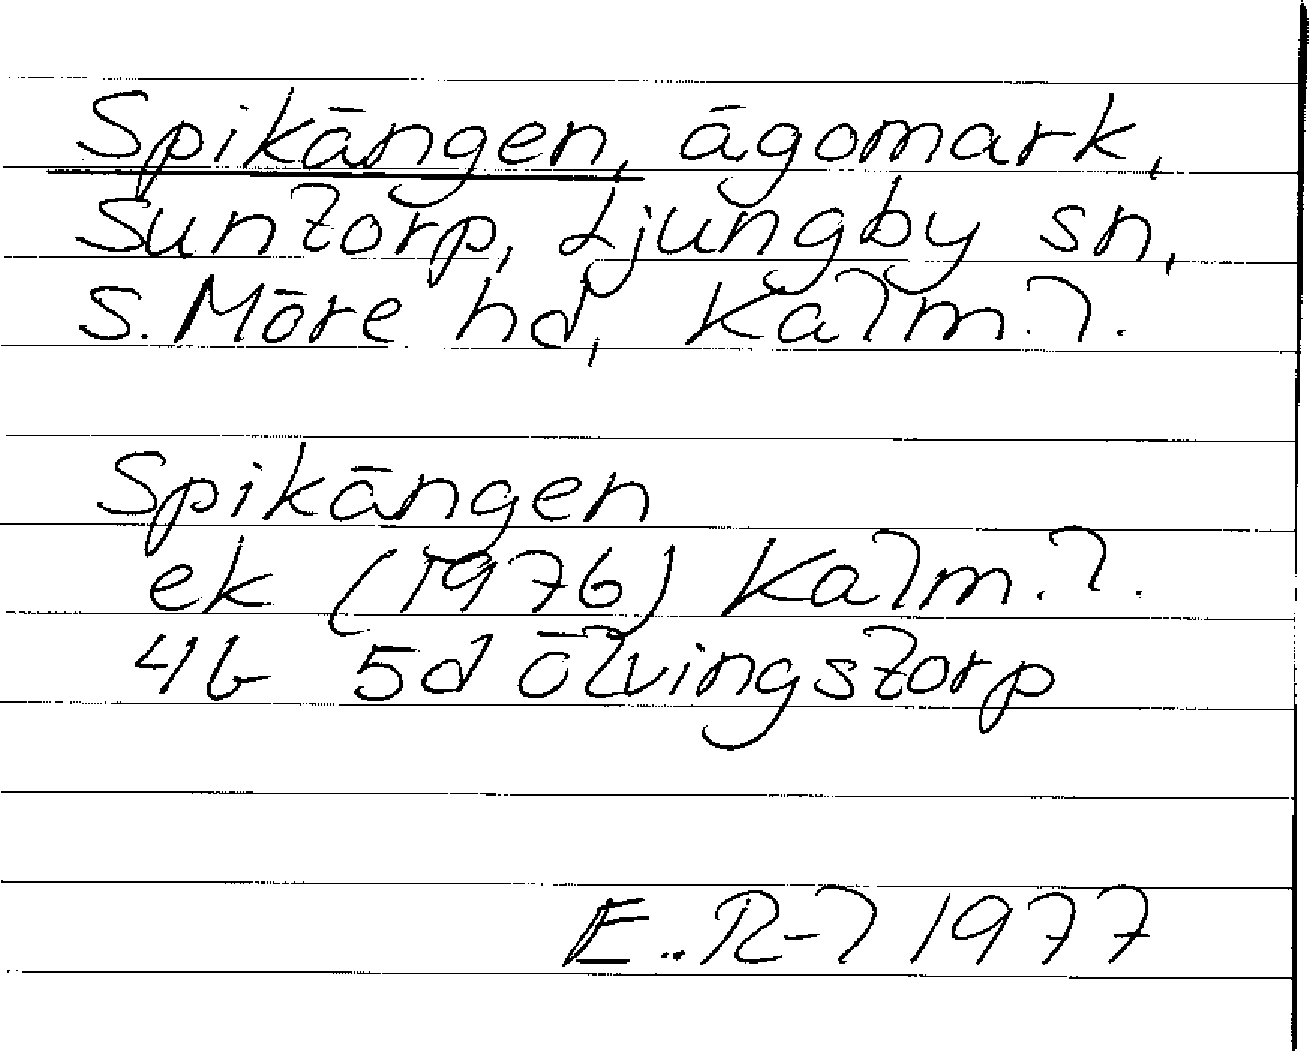 Spikängen, ägomark,
Suntorp, Ljungby sn,
S. Möre hd, Kalm. l.
Spikängen
ek (1976) Kalm. l.
4G 5d Ölvingstorp
E. R-l 1977